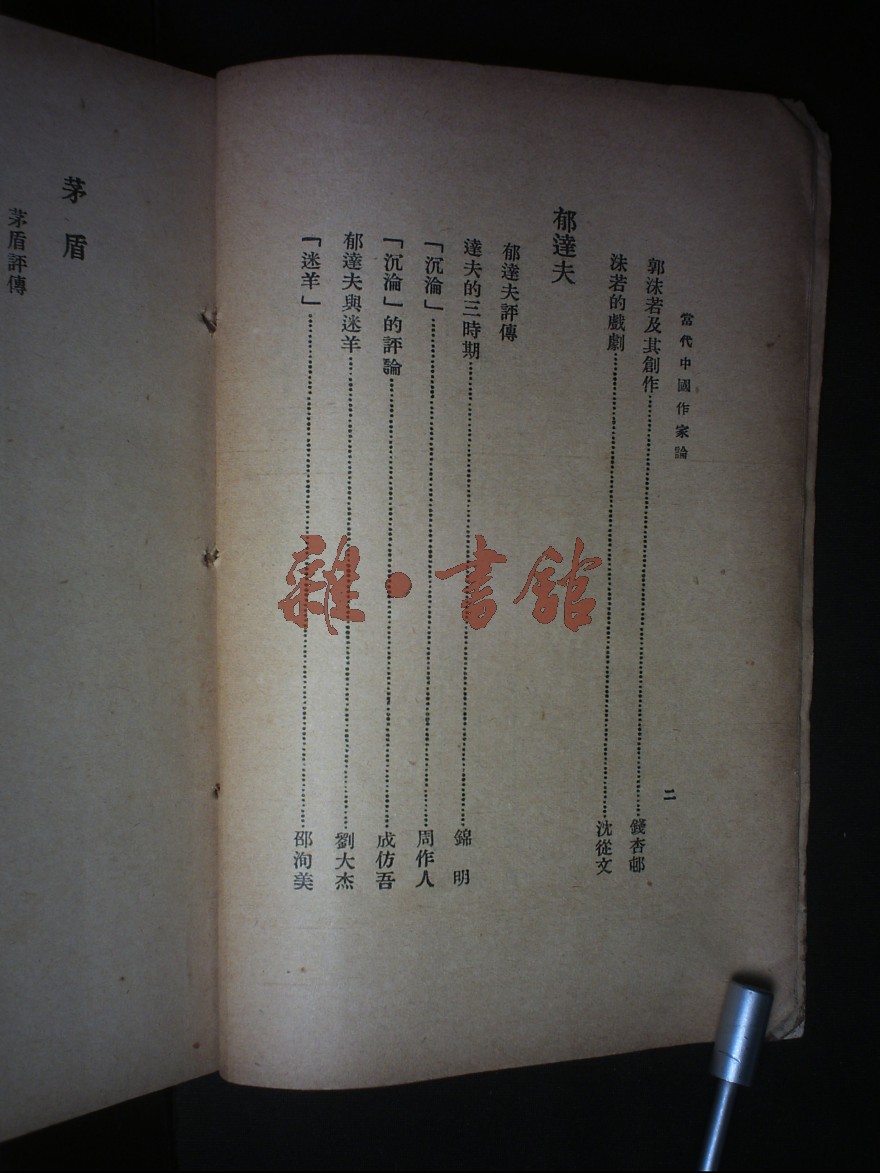 當代中國作家論
二
郭沫若及其創作……錢杏邨
沫若的戲劇……沈從文
郁達夫
郁達夫評傳
達夫的三時期……錦明
「沉淪」……周作人
「沉淪」的評論……成仿吾
郁達夫與迷羊……劉大杰
「迷羊」……邵洵美
茅盾
茅盾評傳
雜·書館